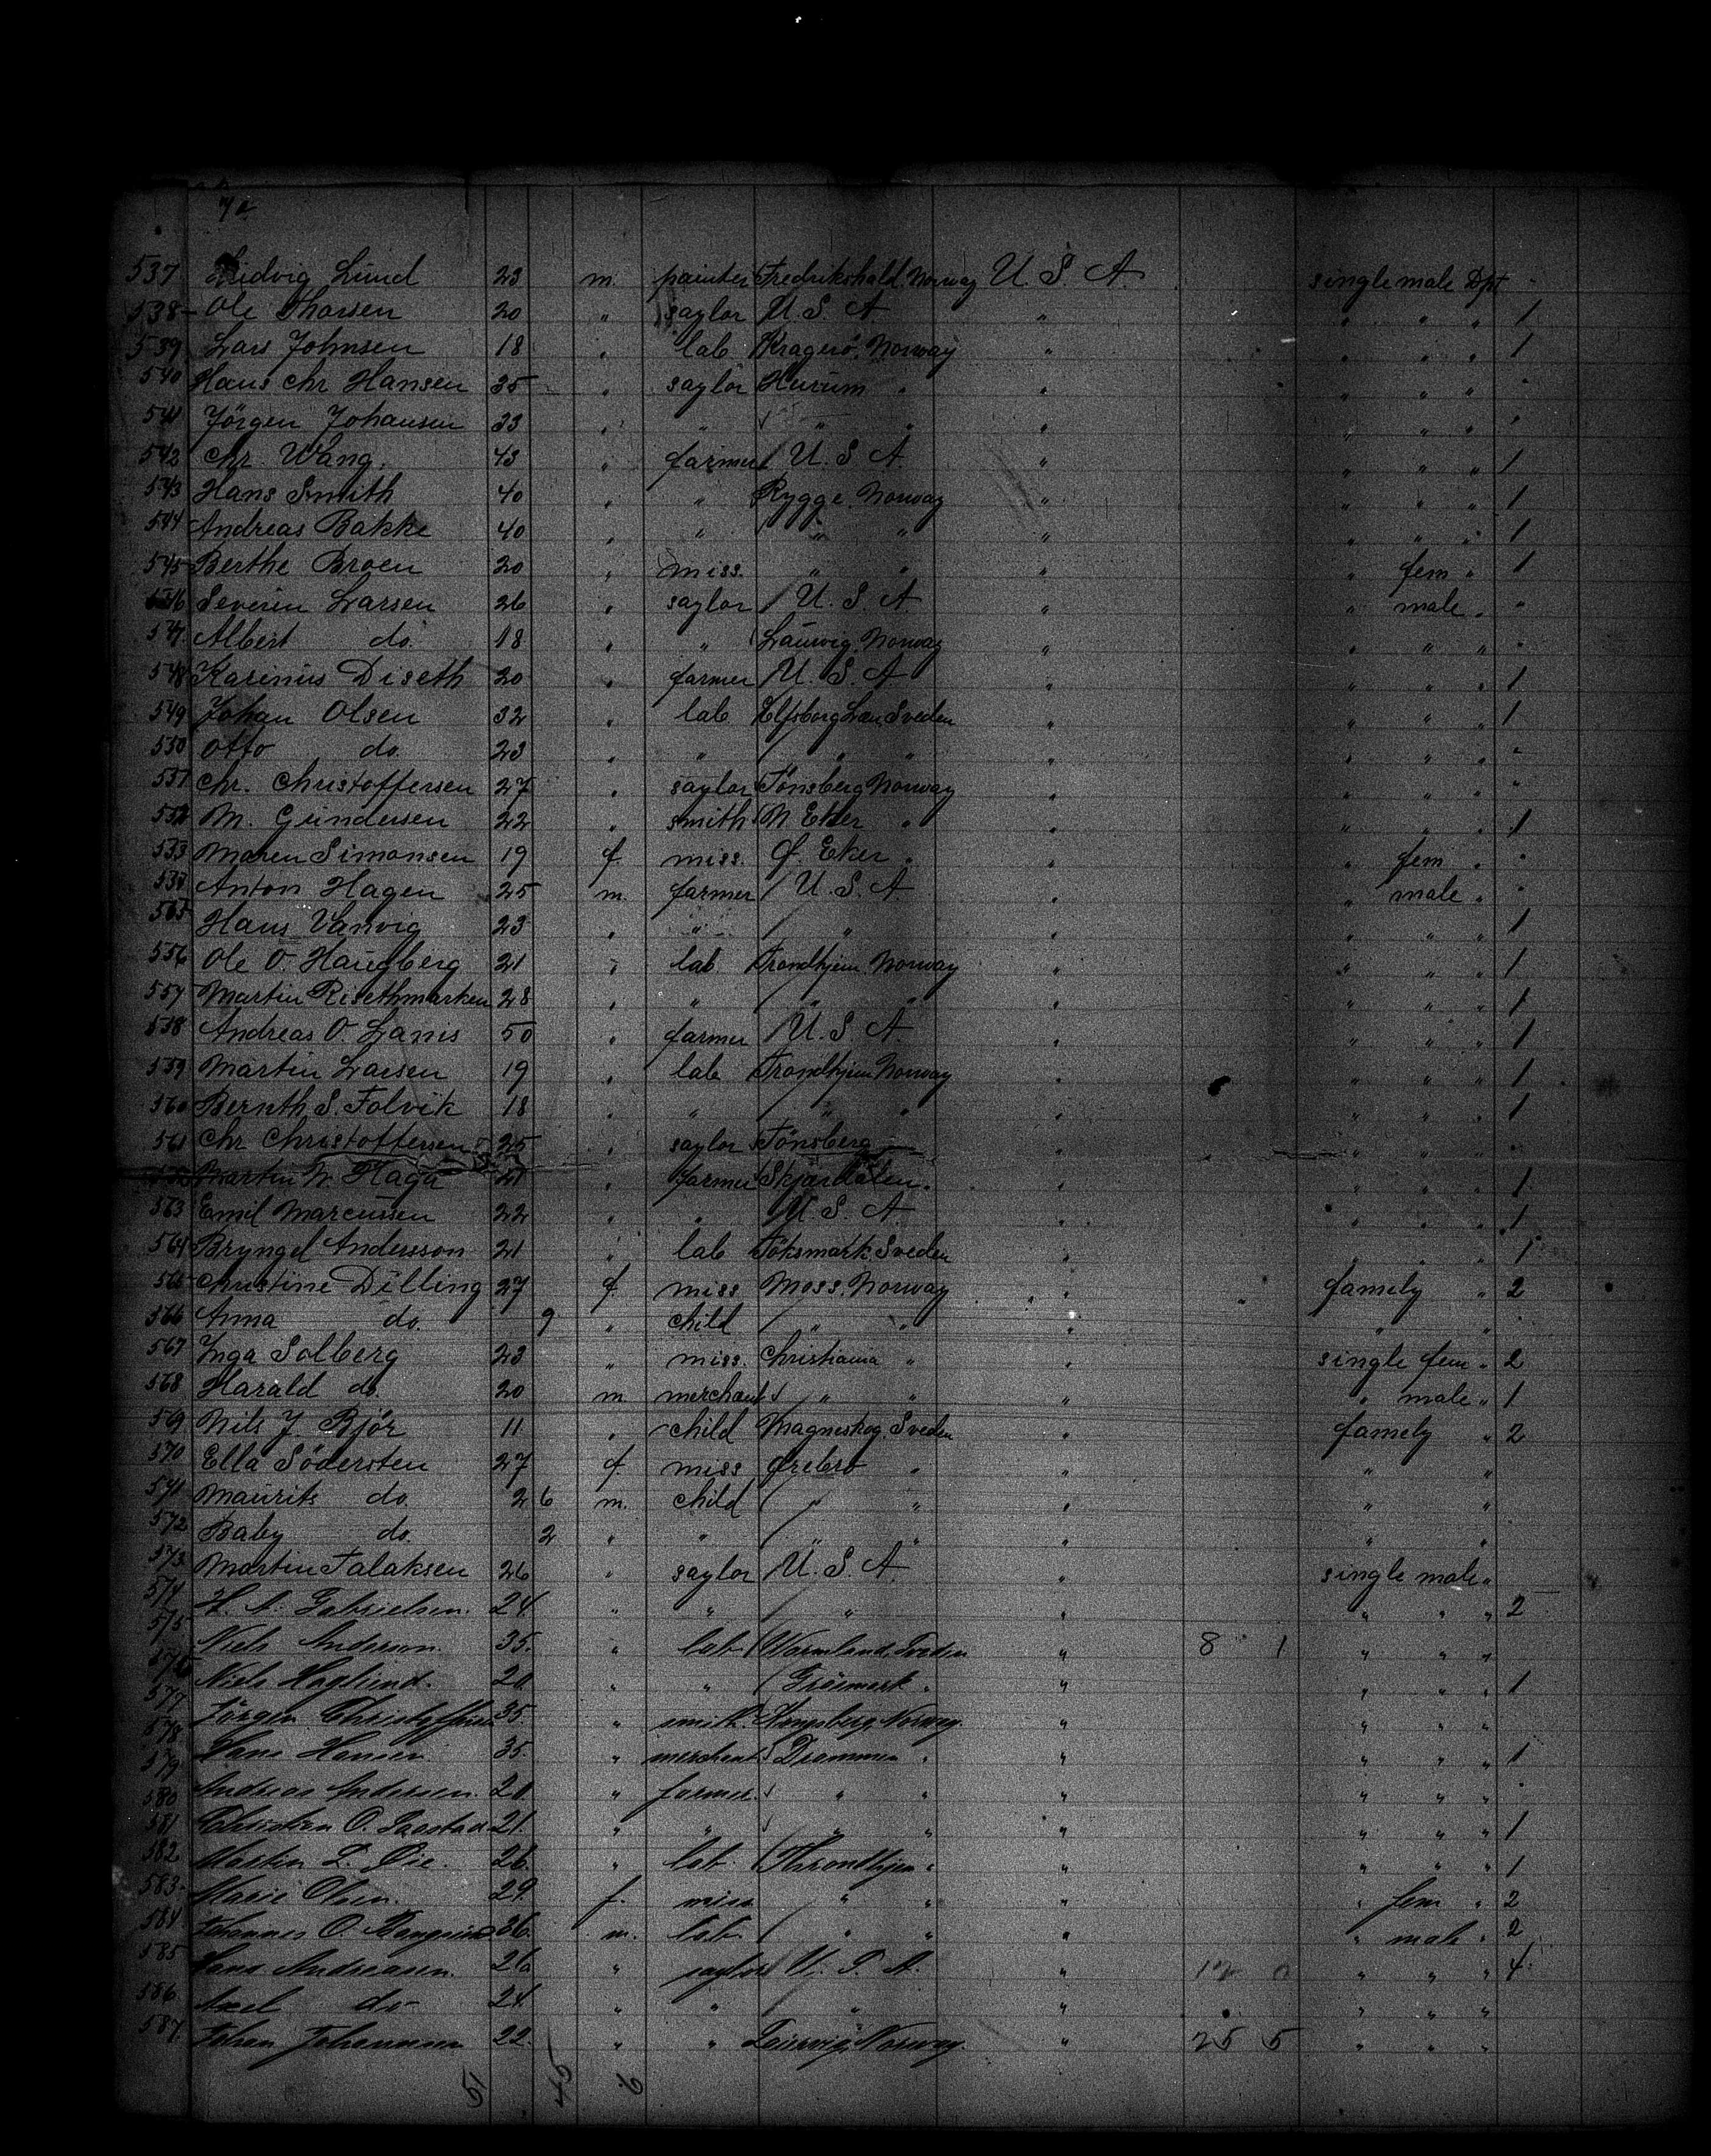 537 Ludvig Lund 23 m. painter Fredrikshald Norway U. S. A. single male Dpt "
538 Ole Thorsen 20 " saylor U. S. A. " " " " 1
539 Lars Johnsen 18 " lab Kragerö. Norway " " " " 1
540 Hans Chr Hansen 35 " saylor Hurum " " " " " "
541 Jörgen Johansen 33 " " " " " " " " "
542 Chr. Wang. 43 " farmer U. S. A. " " " " 1
543 Hans Smith 40 " " Rygge. Norway " " " " 1
544 Andreas Bakke 40 " " " " " " " " 1
545 Berthe Broen 20 " miss. " " " " fem " 1
546 Severin Larsen 26 " saylor U. S. A " " male " "
547. Albert do. 18 " " Laurvig. Norway " " " " "
548 Karinius Diseth 20 " farmer U. S. A " " " " 1
549 Johan Olsen 32 " lab Elfsborg Læn, Sveden " " " " 1
550 Otto do. 23 " " " " " " " " "
551 Chr. Christoffersen 27 " saylor Tönsberg Norway " " " " "
552 M. Gundersen 22 " smith N Eker " " " " " 1
553 Maren Simonsen 19 f. miss. Ø. Eker " " " fem " "
Anton Hagen 25 m. farmer U. S. A. " " male " "
Hans Vanvig 23 " " " " " " " 1
556 Ole O. Haugberg 21 " lab Trondhjem Norway " " " " 1
557 Martin Risethmarken 28 " " " " " " " " 1
558 Andreas O. Lams 50 " farmer U. S. A. " " " " 1
559 Martin Larsen 19 " lab Trondhjem Norway " " " " 1
560 Bernth S. Folvik 18 " " " " " " " " 1
561 Chr Christoffersen 25 " saylor Tönsberg " " " " "
Martin N. Haga 21 " farmer " " " " 1
563 Emil Marcussen 22 " " U. S. A. " " " " 1
564 Bryngel Andersson 21 " lab Töksmark. Sveden " " " " 1
565 Christine Dilling 27 f. miss Moss. Norway " famely " 2
566 Anna do. 9 " child " " " " "
567 Inga Solberg 23 " miss. Christiania " " single fem " 2
568 Harald do. 20 m merchant " " " " male " 1
569 Nils J. Bjór 11 " child Sveden " famely " 2
570 Ella Södersten 27 f. miss Ørebro " " " "
571 Maurits do. 2 6 m. child " " " " "
572 Baby do. 2 " " " " " " "
573 Martin Falaksen 26 " saylor U. S. A. " single male "
574 H. A. Gabrielsen. 24. " " " " " " " 2
575 Niels Anderson. 35. " lab Warmland, Sveden " 8 1 " " "
576 Niels Haglund. 20 " " " " " " " 1
577 Jörgen 35. " smith. Norway. " " " "
578 Hans Hansen 35. " merchant Drammen " " " " " 1
579 Andreas Andersen. 20 " farmer. " " " " " " "
580 Christian O. 21. " " " " " " " " 1
581
582 Martin L. Øie. 26. " lab. Throndhjem " " " " " 1
583. Marie Olsen. 29. f. miss " " " " fem " 2
584. Johannes O. 36. m. lab. " " " " male " 2
585 Hans Andreasen. 26 " saylor U. S. A. " 12 0 " " " 4
586 Axel do 24. " " " " " " "
587. Johan Johannesen 22. " " Laurvig, Norway. " 25 5 " " "
51 45 6